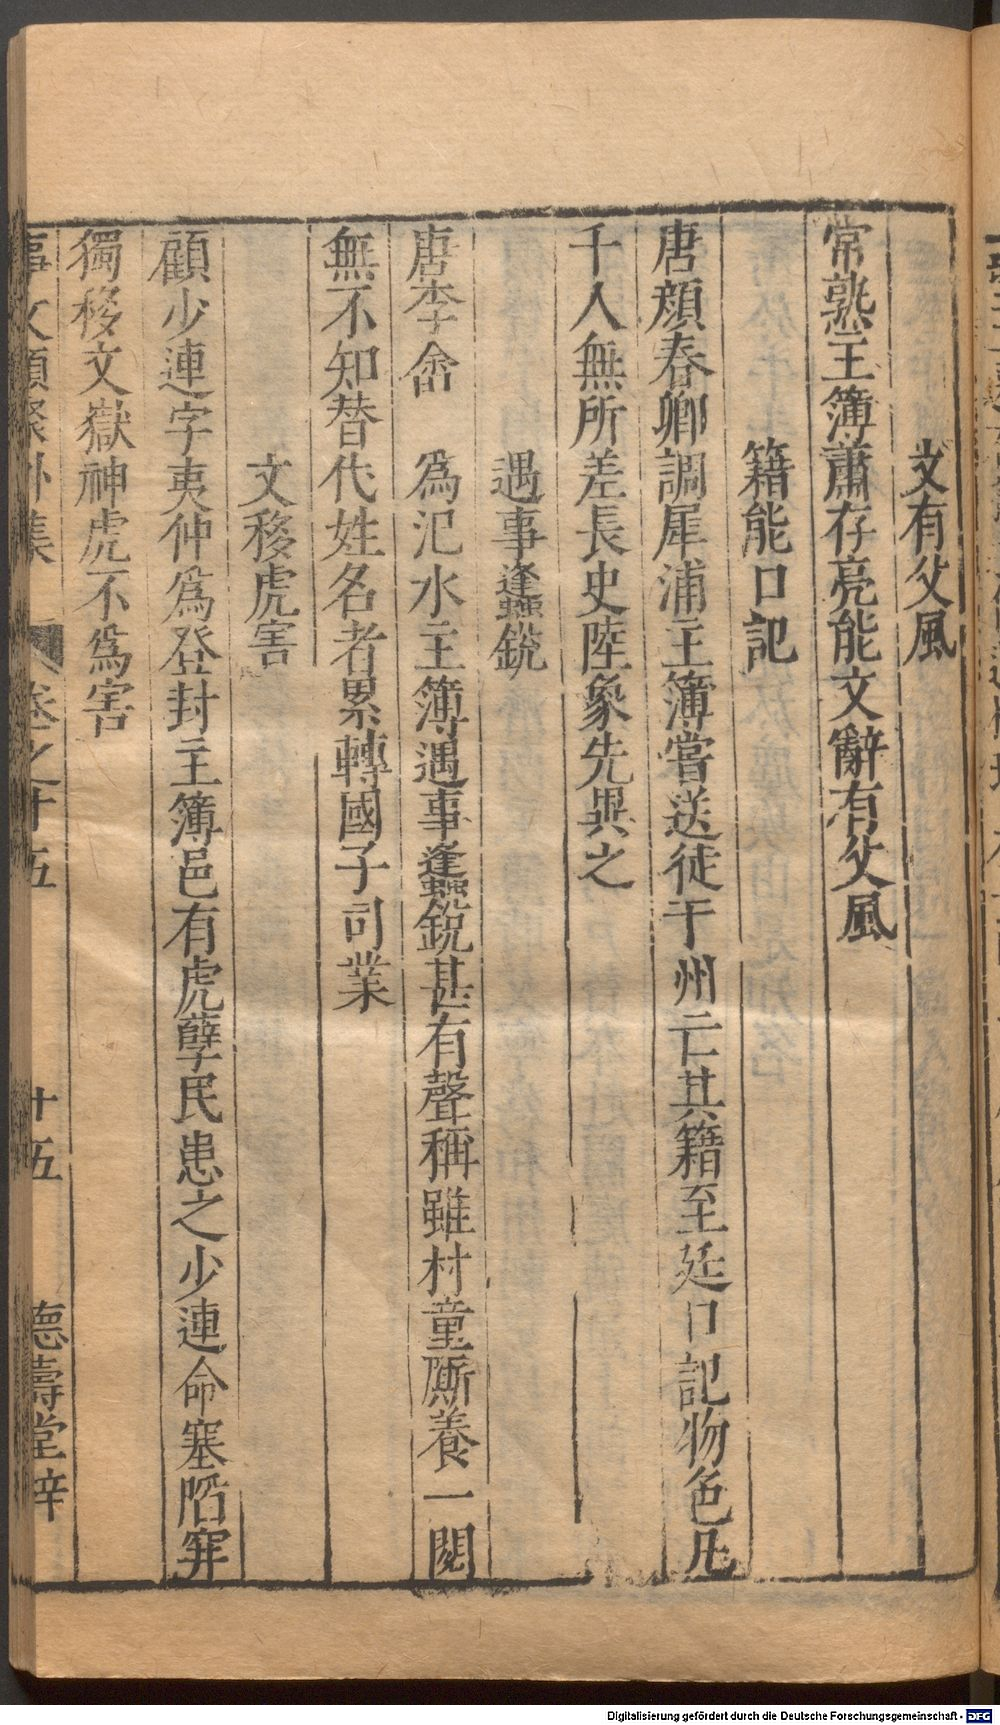 文有父風
常熟王簿蕭存亮能文辭有父風
籍能口記
唐頹春卿調犀浦主簿嘗送徒于州亡其籍至廷口記物色凡
千人無所差長史陸象先異之
遇事蠭銳
唐李畬　爲汜水主簿遇事蠭銳甚有聲稱雖村童厮養一閱
無不知替代姓名者累轉國子司業
文移虎害
顧少連字夷仲爲登封主簿邑有虎孽民患之少連命塞陷穽
獨移文嶽神虎不爲害
事文類聚外集　卷之十五　十五　德壽堂梓
Digitalisierung gefördert durch die Deutsche Forschungsgemeinschaft - DFG